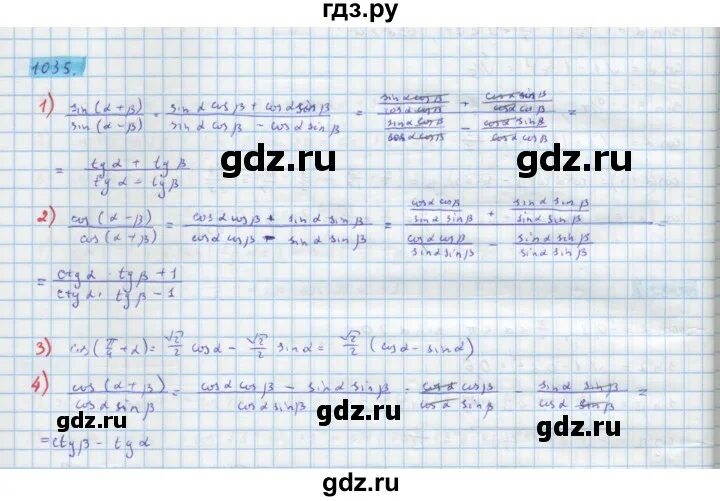 гдз.ру
1035.
1) sin(α+β)/sin(α−β) = (sin α cos β + cos α sin β)/(sin α cos β − cos α sin β) = (sin α cos β/cos α cos β + cos α sin β/cos α cos β)/(sin α cos β/cos α cos β − cos α sin β/cos α cos β) =
= (tg α + tg β)/(tg α − tg β)
gdz.ru gdz.ru
2) cos(α−β)/cos(α+β) = (cos α cos β + sin α sin β)/(cos α cos β − sin α sin β) = (cos α cos β/sin α sin β + sin α sin β/sin α sin β)/(cos α cos β/sin α sin β − sin α sin β/sin α sin β) =
gdz.ru
= (ctg α · tg β + 1)/(ctg α · tg β − 1)
3) cos(π/4 + α) = √2/2 cos α − √2/2 sin α = √2/2 (cos α − sin α)
4) cos(α+β)/cos α sin β = (cos α cos β − sin α sin β)/cos α sin β = cos α cos β/cos α sin β − sin α sin β/cos α sin β =
gdz.ru gdz.ru
= ctg β − tg α
gdz.ru